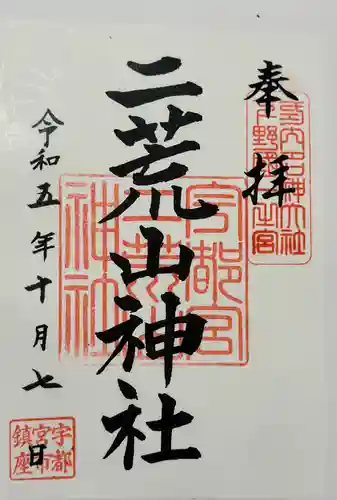 奉拝
式内名神大社
下野國一之宮
二荒山神社
宇都宮
二荒山
神社
令和五年十月七日
宇都
宮市
鎮座